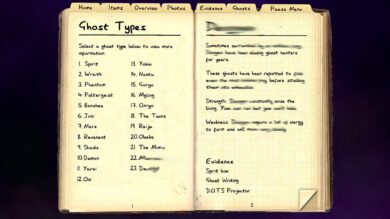 Home Items Overview Photos Evidence Ghosts Pause Menu
Ghost Types
Select a ghost type below to view more
information
1. Spirit
2. Wraith
3. Phantom
4. Poltergeist
5. Banshee
6. Jinn
7. Mare
8. Revenant
9. Shade
10. Demon
11. Yurei
12. Oni
13. Yokai
14. Hantu
15. Goryo
16. Myling
17. Onryo
18. The Twins
19. Raiju
20. Obake
21. The Mimic
22.
23.
1
Sometimes
have been
ghost hunters
for years
These ghosts have been reported to
before stealing
their
Strength: constantly sense the
living. You can run but you can't hide.
Weakness: require a lot of energy
to form and
Evidence
Spirit box
Ghost Writing
D.O.T.S Projector
2